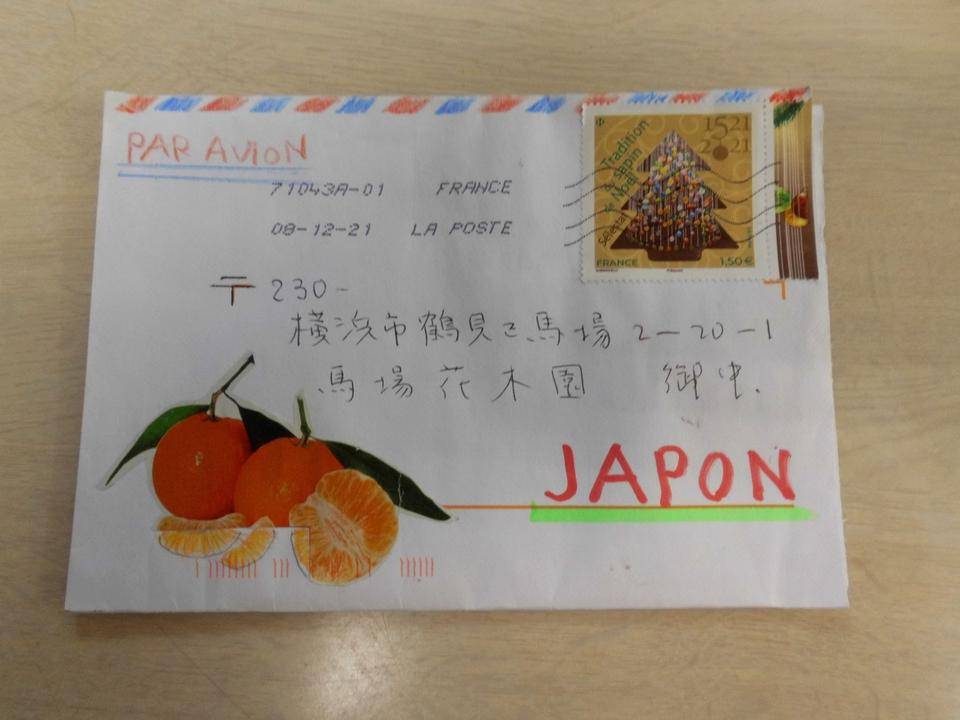 PAR AVION
71043A-01 FRANCE
08-12-21 LA POSTE
1521
2021
Tradition
du sapin
de Noël
Sélestat
FRANCE 1,50€
〒230-
横浜市鶴見区馬場2-20-1
馬場花木園 御中.
JAPON